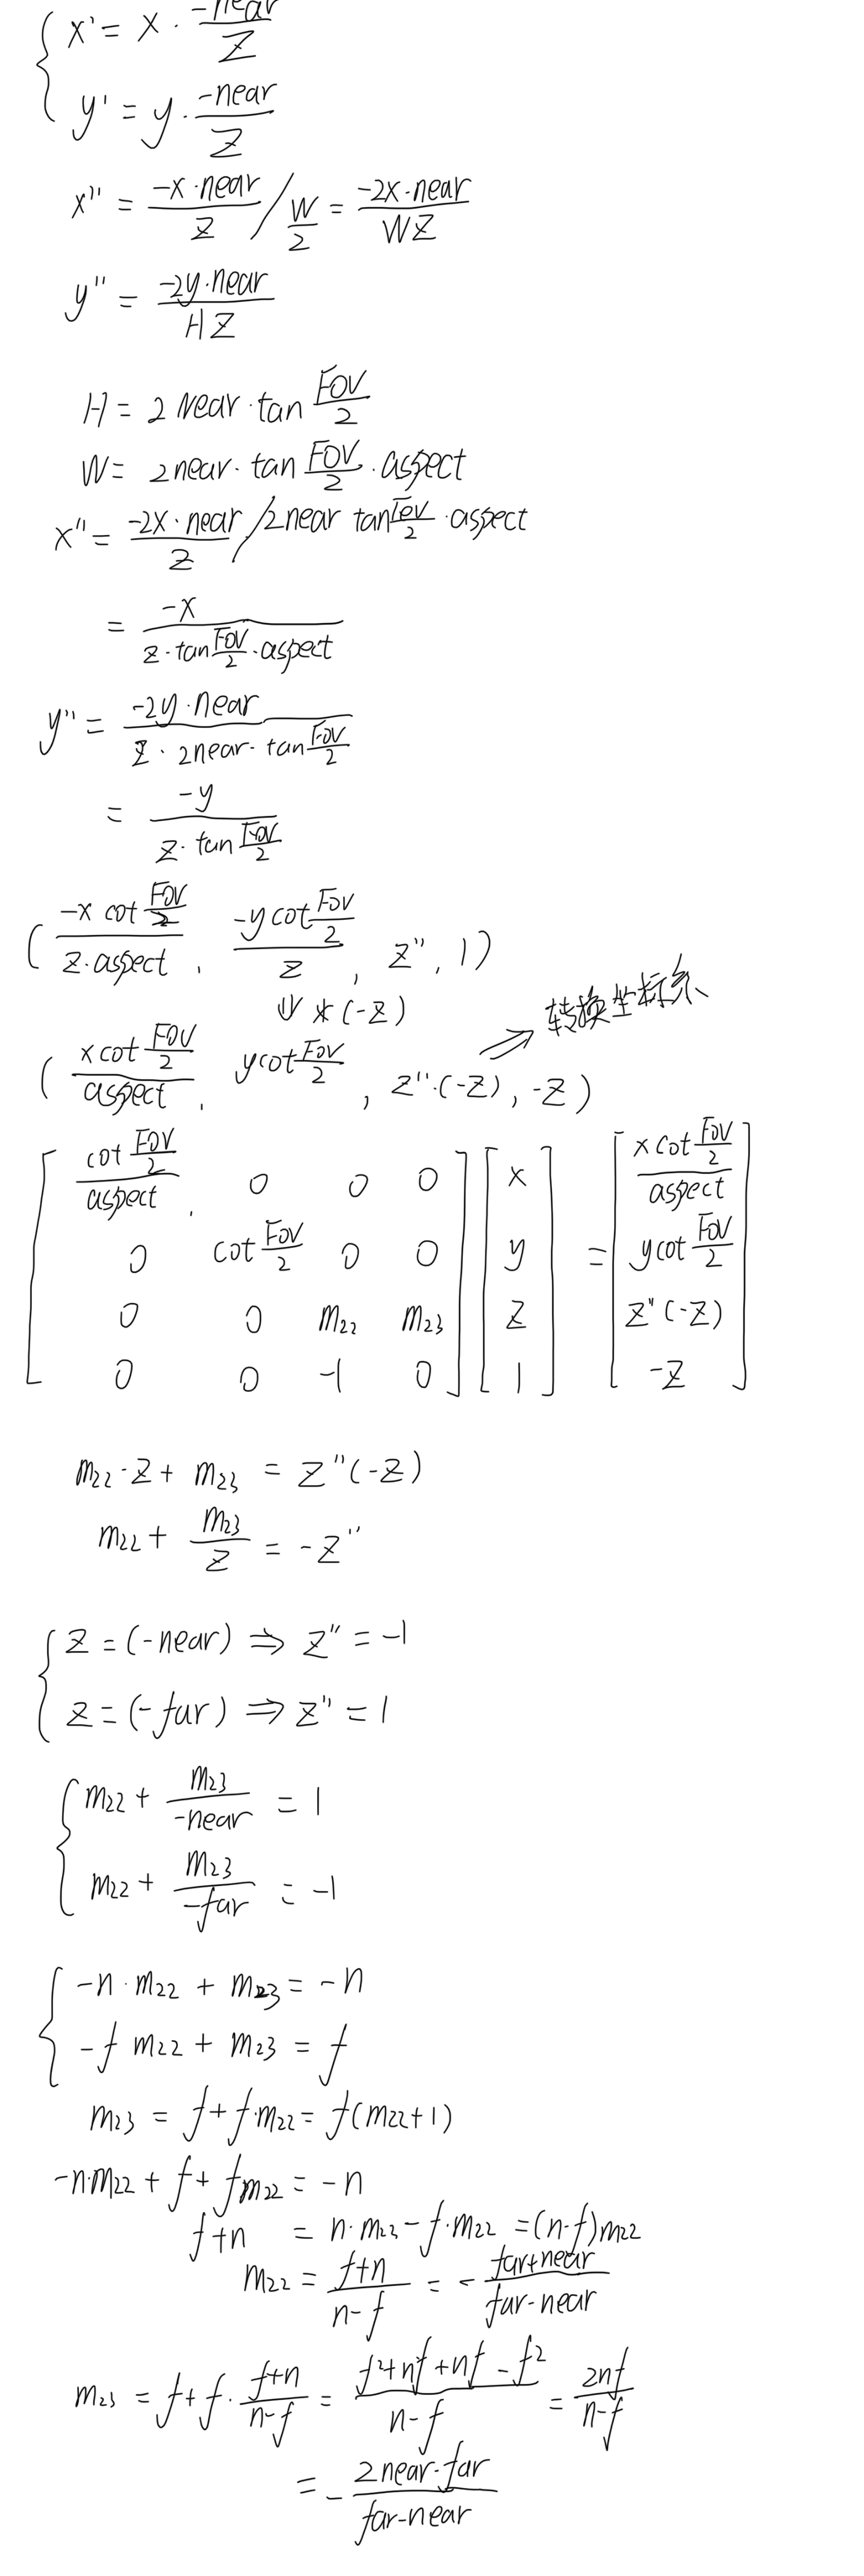 x' = x · -near/Z
y' = y · -near/Z
x'' = -x·near/Z / W/2 = -2x·near/WZ
y'' = -2y·near/HZ
H = 2 near·tan FOV/2
W = 2near·tan FOV/2 · aspect
x'' = -2x·near/Z / 2near tan FOV/2 · aspect
= -x/(z·tan FOV/2 · aspect)
y'' = -2y·near/(Z · 2near·tan FOV/2)
= -y/(z·tan FOV/2)
( -x cot FOV/2 / z·aspect, -y cot FOV/2 / z, z'', 1)
⇓ * (-z) ⇒ 转换坐标系
( x cot FOV/2 / aspect, y cot FOV/2, z''·(-z), -z )
[ cot FOV/2 / aspect, 0 0 0 ] [ x ] = [ x cot FOV/2 / aspect ]
[ 0 cot FOV/2 0 0 ] [ y ] [ y cot FOV/2 ]
[ 0 0 m22 m23 ] [ z ] [ z''(-z) ]
[ 0 0 -1 0 ] [ 1 ] [ -z ]
m22·z + m23 = z''(-z)
m22 + m23/z = -z''
z = (-near) ⇒ z'' = -1
z = (-far) ⇒ z'' = 1
m22 + m23/-near = 1
m22 + m23/-far = -1
-n·m22 + m23 = -n
-f m22 + m23 = f
m23 = f+f·m22 = f(m22+1)
-n·m22 + f + fm22 = -n
f+n = n·m22 - f·m22 = (n-f)m22
m22 = f+n/n-f = - far+near/far-near
m23 = f+f· f+n/n-f = f²+nf+nf-f²/n-f = 2nf/n-f
= - 2near·far/far-near